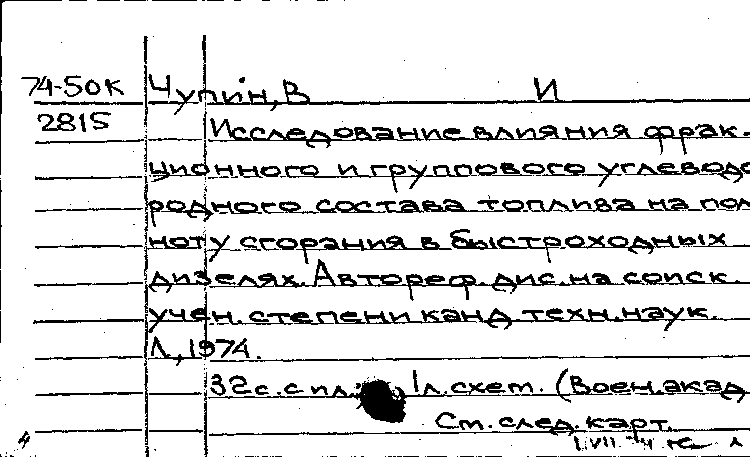 74-50К Чупин, В И
2815 Исследование влияния фрак-
ционного и группового углеводо
родного состава топлива на пол
ноту сгорания в быстроходных
дизелях. Автореф. дис. на соиск.
учен. степени канд. техн. наук.
Л., 1974.
32 с. с ил., 1 л. схем. (Воен. акад
См. след. карт.
4